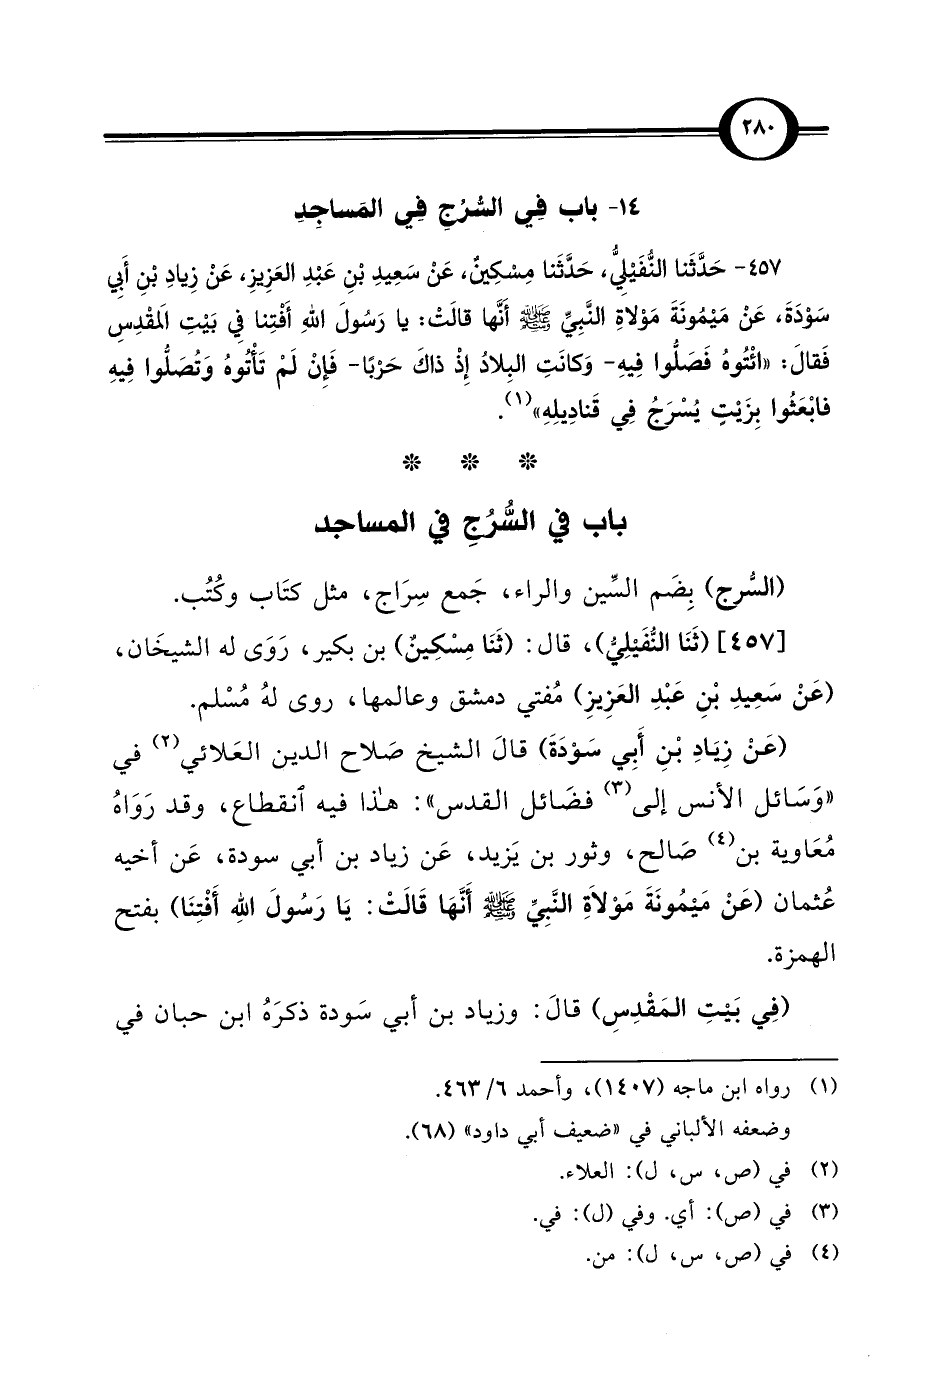 ٢٨٠
١٤- باب فِي السُّرُجِ فِي المَساجِدِ
٤٥٧- حَدَّثَنا النُّفَيْلِيُّ، حَدَّثَنا مِسْكِينٌ، عَنْ سَعِيدِ بْنِ عَبْدِ العَزِيزِ، عَنْ زِيادِ بْنِ أَبِي
سَوْدَةَ، عَنْ مَيْمُونَةَ مَوْلاةِ النَّبِيِّ ﷺ أَنَّها قالَتْ: يا رَسُولَ اللهِ أَفْتِنا فِي بَيْتِ المَقْدِسِ
فَقالَ: «ائْتُوهُ فَصَلُّوا فِيهِ- وَكانَتِ البِلادُ إِذْ ذاكَ حَرْبًا- فَإِنْ لَمْ تَأْتُوهُ وَتُصَلُّوا فِيهِ
فابْعَثُوا بِزَيْتٍ يُسْرَجُ فِي قَنادِيلِهِ»(١).
* * *
باب في السُّرُجِ في المساجد
(السُّرج) بِضَم السِّين والراء، جَمع سِرَاج، مثل كتَاب وكُتُب.
[٤٥٧] (ثَنَا النُّفَيْلِيُّ)، قال: (ثَنَا مِسْكِينٌ) بن بكير، رَوَى له الشيخَان،
(عَنْ سَعِيدِ بْنِ عَبْدِ العَزِيزِ) مُفتي دمشق وعالمها، روى لهُ مُسْلم.
(عَنْ زِيَادِ بْنِ أَبِي سَوْدَةَ) قالَ الشيخ صَلاح الدين العَلائي(٢) في
«وَسَائل الأنس إلى(٣) فضَائل القدس»: هذا فيه ٱنقطاع، وقد رَوَاهُ
مُعَاوية بن(٤) صَالح، وثور بن يَزيد، عَن زياد بن أبي سودة، عَن أخيه
عُثمان (عَنْ مَيْمُونَةَ مَوْلاَةِ النَّبِيِّ ﷺ أَنَّهَا قَالَتْ: يَا رَسُولَ اللهِ أَفْتِنَا) بفتح
الهمزة.
(فِي بَيْتِ المَقْدِسِ) قالَ: وزياد بن أبي سَودة ذكرَهُ ابن حبان في
(١) رواه ابن ماجه (١٤٠٧)، وأحمد ٦/ ٤٦٣.
وضعفه الألباني في «ضعيف أبي داود» (٦٨).
(٢) في (ص، س، ل): العلاء.
(٣) في (ص): أي. وفي (ل): في.
(٤) في (ص، س، ل): من.